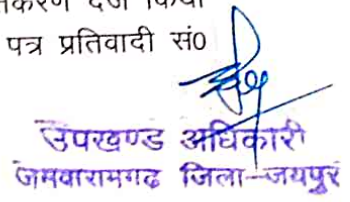 पत्र प्रतिवादी सं0
उपखण्ड अधिकारी
जमवारामगढ जिला-जयपुर